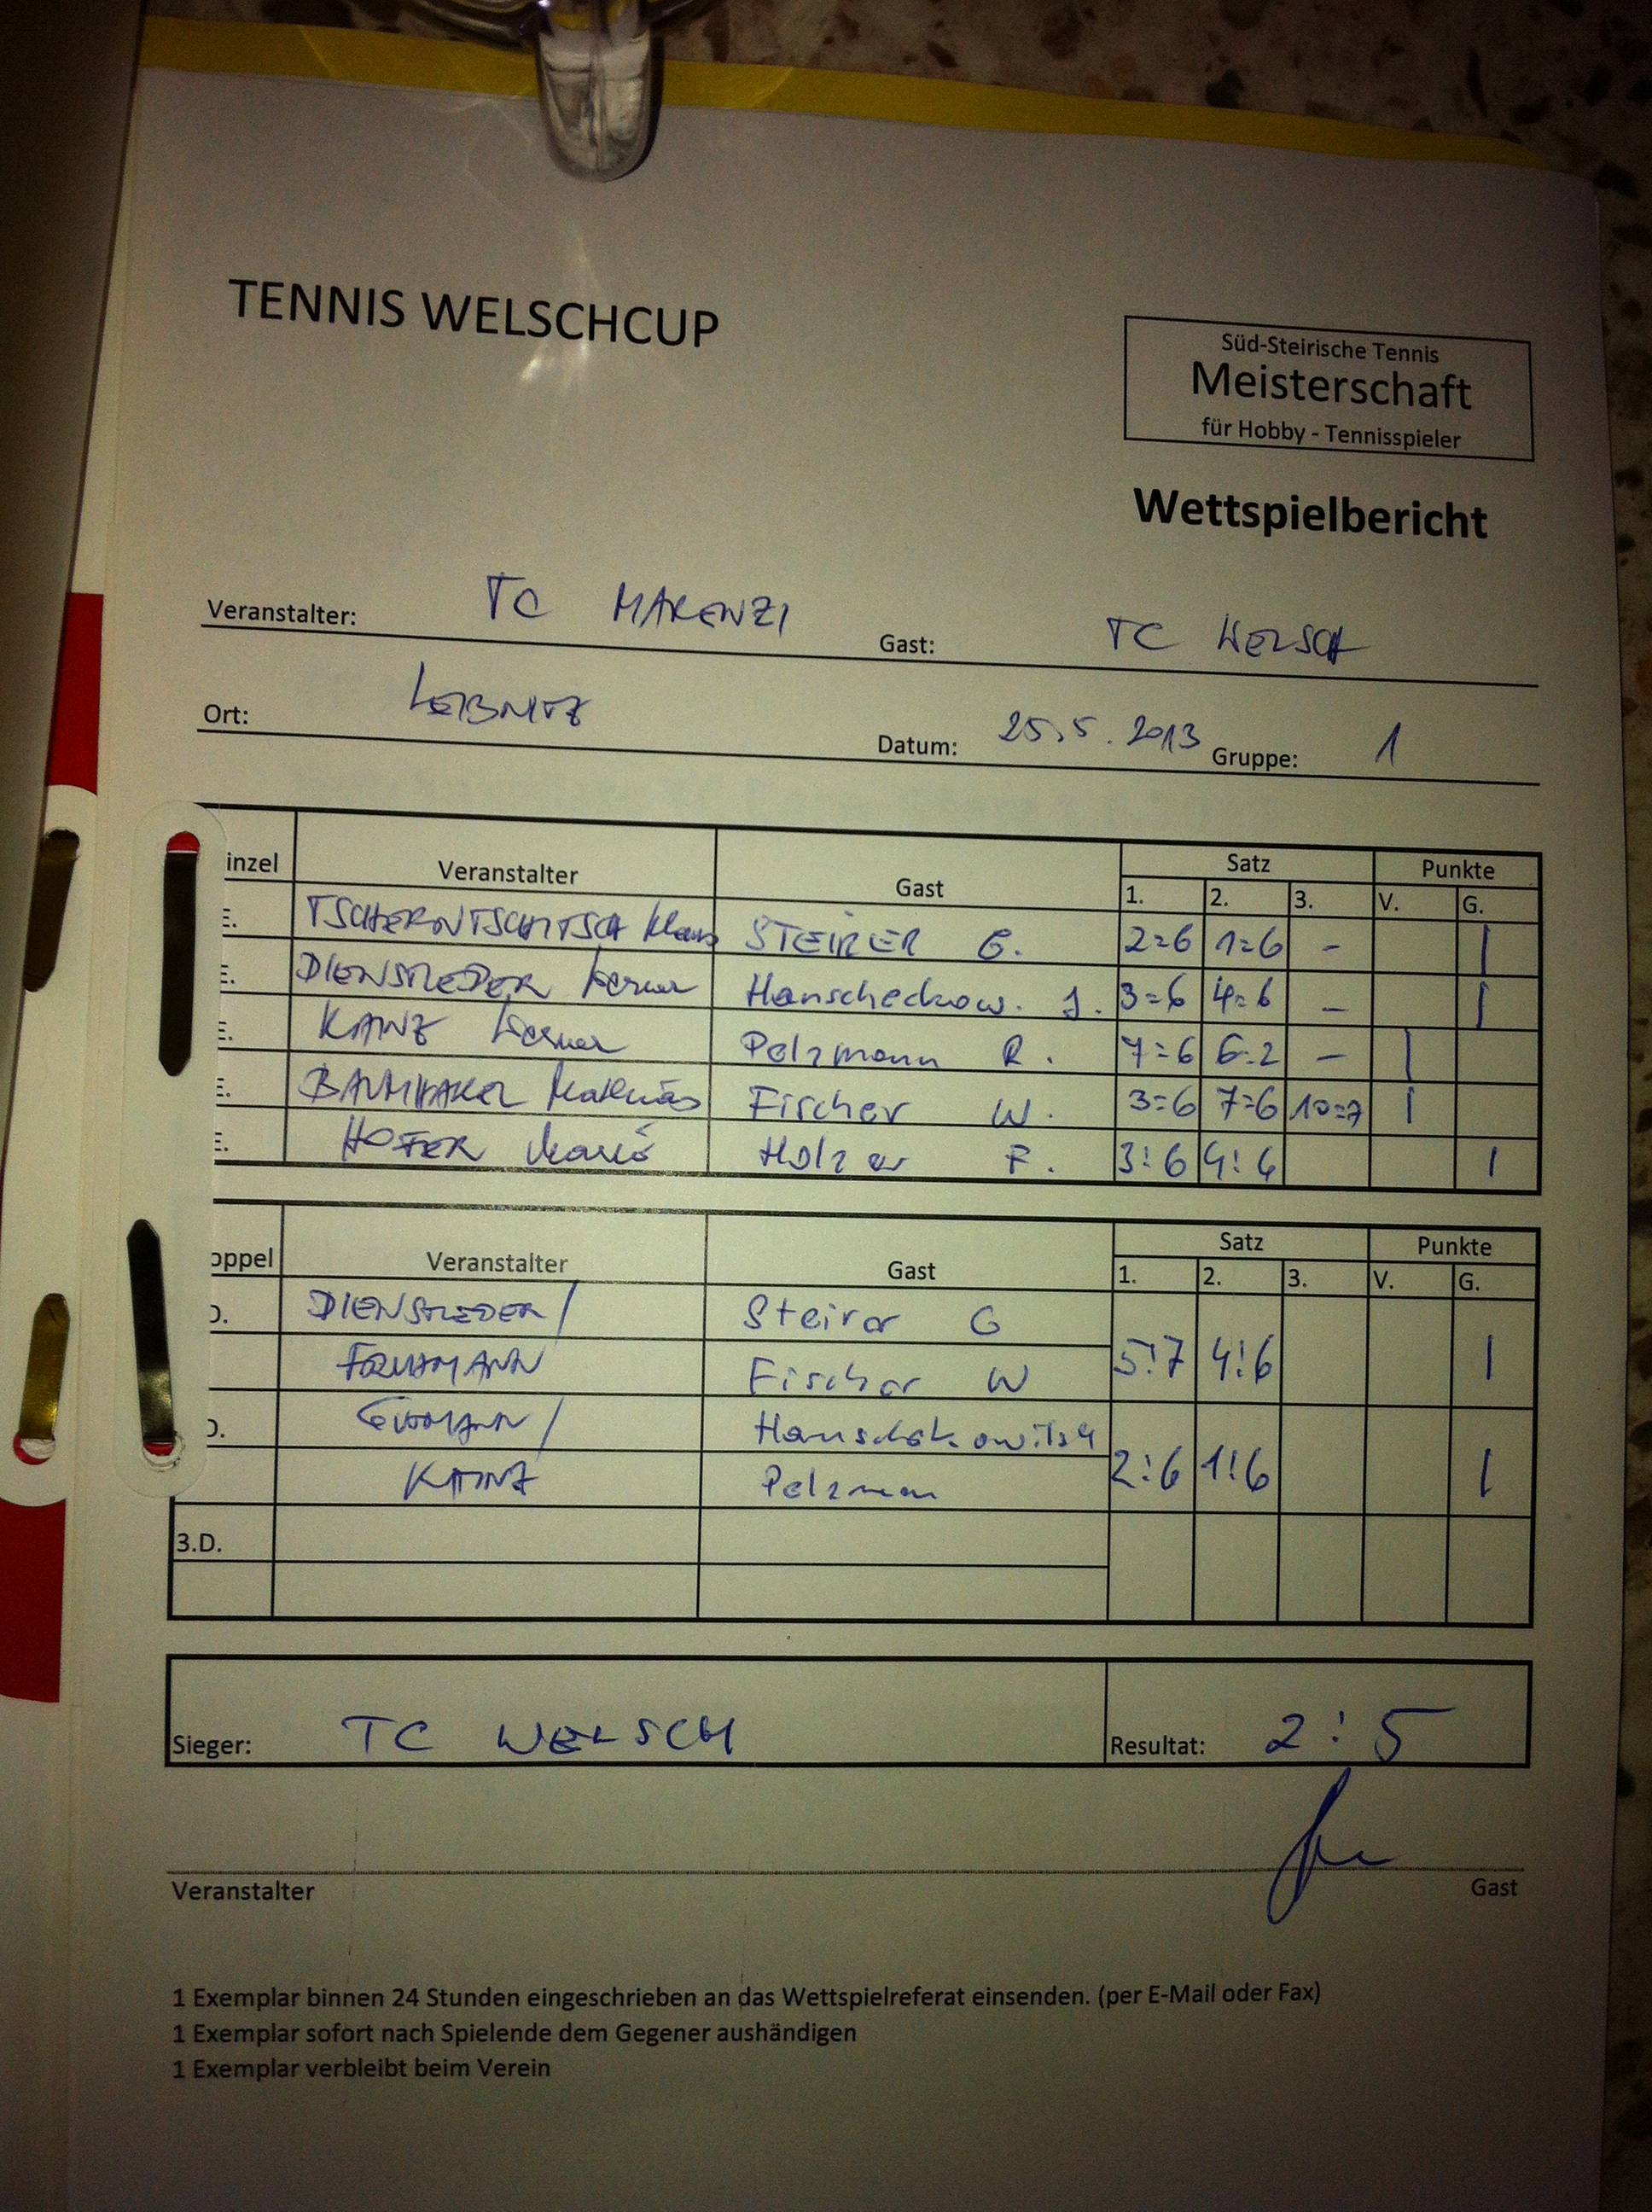 TENNIS WELSCHCUP
Süd-Steirische Tennis
Meisterschaft
für Hobby - Tennisspieler
Wettspielbericht
Veranstalter: TC MARENZI Gast: TC WELSCH
Ort: LEIBNITZ Datum: 25.5.2013 Gruppe: 1
inzel Veranstalter Gast Satz Punkte
1. 2. 3. V. G.
E. TSCHERNTSCHITSCH Klaus STEIRER G. 2=6 1=6 - |
E. DIENSTLEDER Werner Hanscheckow. J. 3=6 4=6 - |
E. KAINZ Werner Pelzmann R. 7=6 6=2 - |
E. Mathias Fischer W. 3=6 7=6 10=7 |
E. HOFER Mario Holzer F. 3:6 4:6 |
oppel Veranstalter Gast Satz Punkte
1. 2. 3. V. G.
D. DIENSTLEDER / Steirer G
FRUHMANN Fischer W 5:7 4:6 |
D. /
KAINZ Pelzman 2:6 1:6 |
3.D.
Sieger: TC WELSCH Resultat: 2:5
Veranstalter Gast
1 Exemplar binnen 24 Stunden eingeschrieben an das Wettspielreferat einsenden. (per E-Mail oder Fax)
1 Exemplar sofort nach Spielende dem Gegener aushändigen
1 Exemplar verbleibt beim Verein